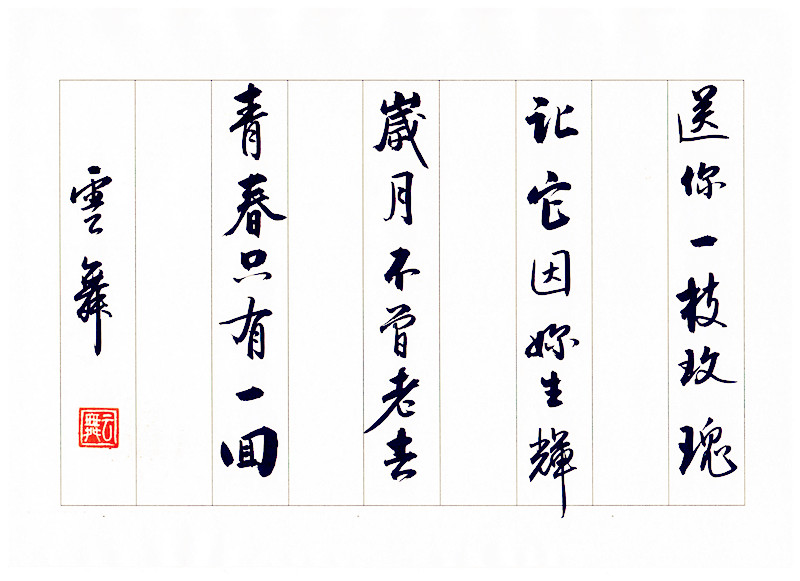 送你一枝玫瑰
让它因妳生輝
歲月不曾老去
青春只有一回
雲舞
云舞